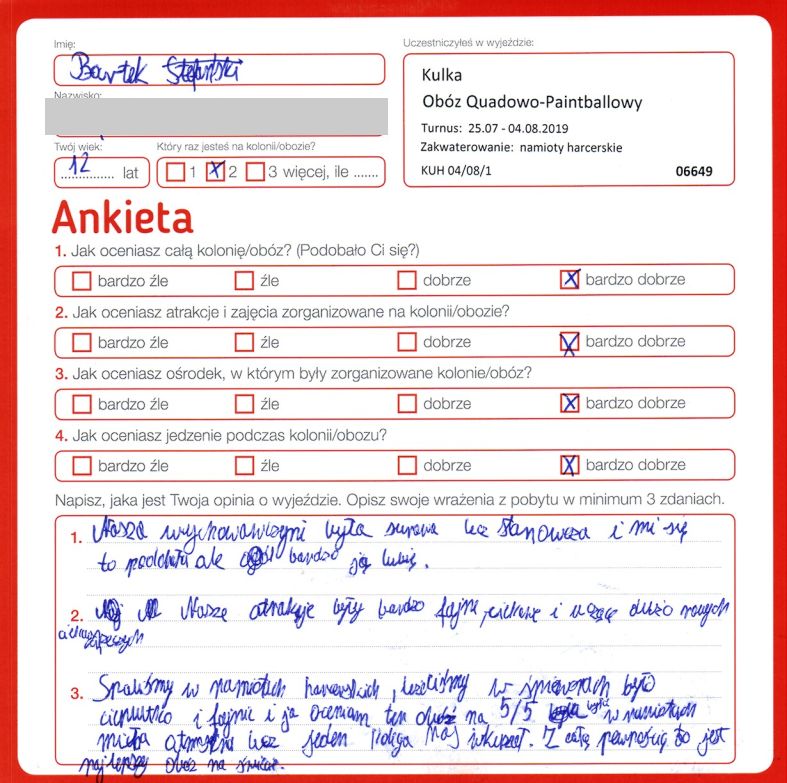 Imię:
Uczestniczyłeś w wyjeździe:
Bartek
Nazwisko:
Kulka
Obóz Quadowo-Paintballowy
Turnus: 25.07 - 04.08.2019
Zakwaterowanie: namioty harcerskie
KUH 04/08/1 06649
Twój wiek:
Który raz jesteś na kolonii/obozie?
12 lat
1 X 2 3 więcej, ile .......
Ankieta
1. Jak oceniasz całą kolonię/obóz? (Podobało Ci się?)
bardzo źle źle dobrze X bardzo dobrze
2. Jak oceniasz atrakcje i zajęcia zorganizowane na kolonii/obozie?
bardzo źle źle dobrze X bardzo dobrze
3. Jak oceniasz ośrodek, w którym były zorganizowane kolonie/obóz?
bardzo źle źle dobrze X bardzo dobrze
4. Jak oceniasz jedzenie podczas kolonii/obozu?
bardzo źle źle dobrze X bardzo dobrze
Napisz, jaka jest Twoja opinia o wyjeździe. Opisz swoje wrażenia z pobytu w minimum 3 zdaniach.
1. Nasza wychowawczyni była surowa lecz stanowcza i mi się
to podobało ale bardzo ją lubię.
2. Nasze atrakcje były bardzo fajne, ciekawe i uczące dużo nowych
ciekawych
3. Spaliśmy w namiotach harcerskich, leżeliśmy w śpiworach było
cieplutko i fajnie i ja oceniam ten obóz na 5/5 w namiotach
miła atmosfera lecz jeden kolega nas wkurzał. Z całą pewnością to jest
najlepszy obóz na świecie.